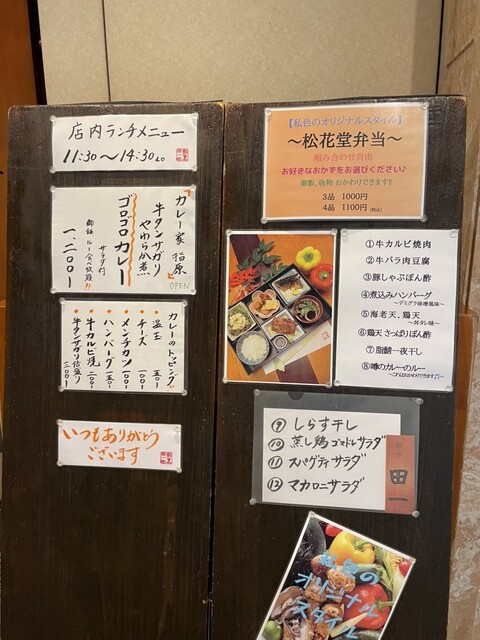 店内ランチメニュー
11:30〜14:30 L.O
カレー家 指原
OPEN
牛タンサガリ
やわらか煮
ゴロゴロカレー
サラダ付
御飯 ルー食べ放題!!
一.二〇〇1
カレーのトッピング!!
温玉 五〇1
チーズ 一〇〇1
メンチカツ 一〇〇1
ハンバーグ 一五〇1
牛カルビ焼 二〇〇1
牛タンサガリ倍盛り 三〇〇1
いつもありがとう
ございます
【私色のオリジナルスタイル】
〜松花堂弁当〜
組み合わせ自由
お好きなおかずをお選びください♪
御飯、吸物 おかわりできます!!
3品 1000円
4品 1100円(税込)
①牛カルビ焼肉
②牛バラ肉豆腐
③豚しゃぶぽん酢
④煮込みハンバーグ
〜デミグラ味噌風味〜
⑤海老天、鶏天
〜丼タレ味〜
⑥鶏天 さっぱりぽん酢
⑦脂鯖一夜干し
⑧噂のカレーのルー
〜これもおかわりできます♪〜
⑨ しらす干し
⑩ 蒸し鶏ゴマドレサラダ
⑪ スパゲティサラダ
⑫ マカロニサラダ
私色の
オリジナル
スタイル